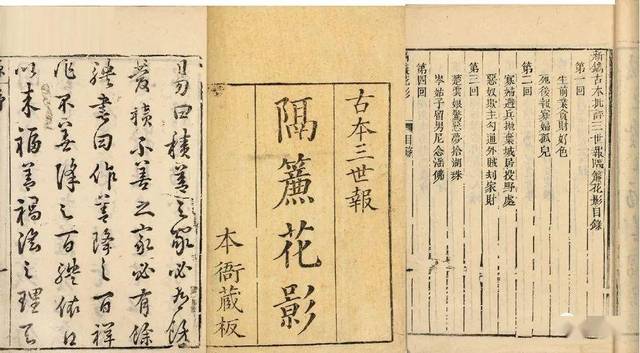 易曰積善之家必有餘
慶積不善之家必有餘
殃書曰作善降之百祥
作不善降之百殃
以來福善禍淫之理天
古本三世報
隔簾花影
本衙藏板
新鐫古本批評三世報隔簾花影目錄
第一回
生前業貪財好色
死後報寡婦孤兒
第二回
寡婦避兵拋棄城居投野處
惡奴欺主勾通外賊刧家財
第三回
楚雲娘驚惡夢拾湖珠
岑姑子留男尼念淫佛
第四回
簾花影 目錄